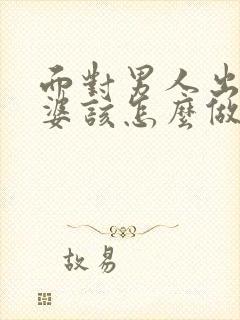 面對男人出
婆該怎麼做
故易